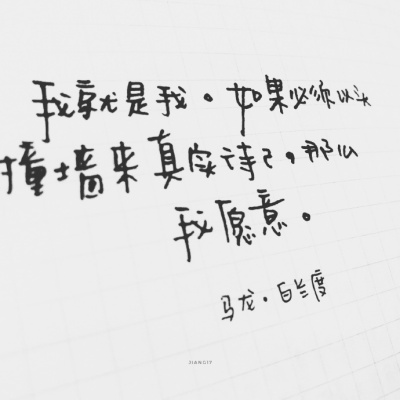 我就是我。如果必须以头
撞墙来真实待己,那么
我愿意。
马龙·白兰度
JIANGTP